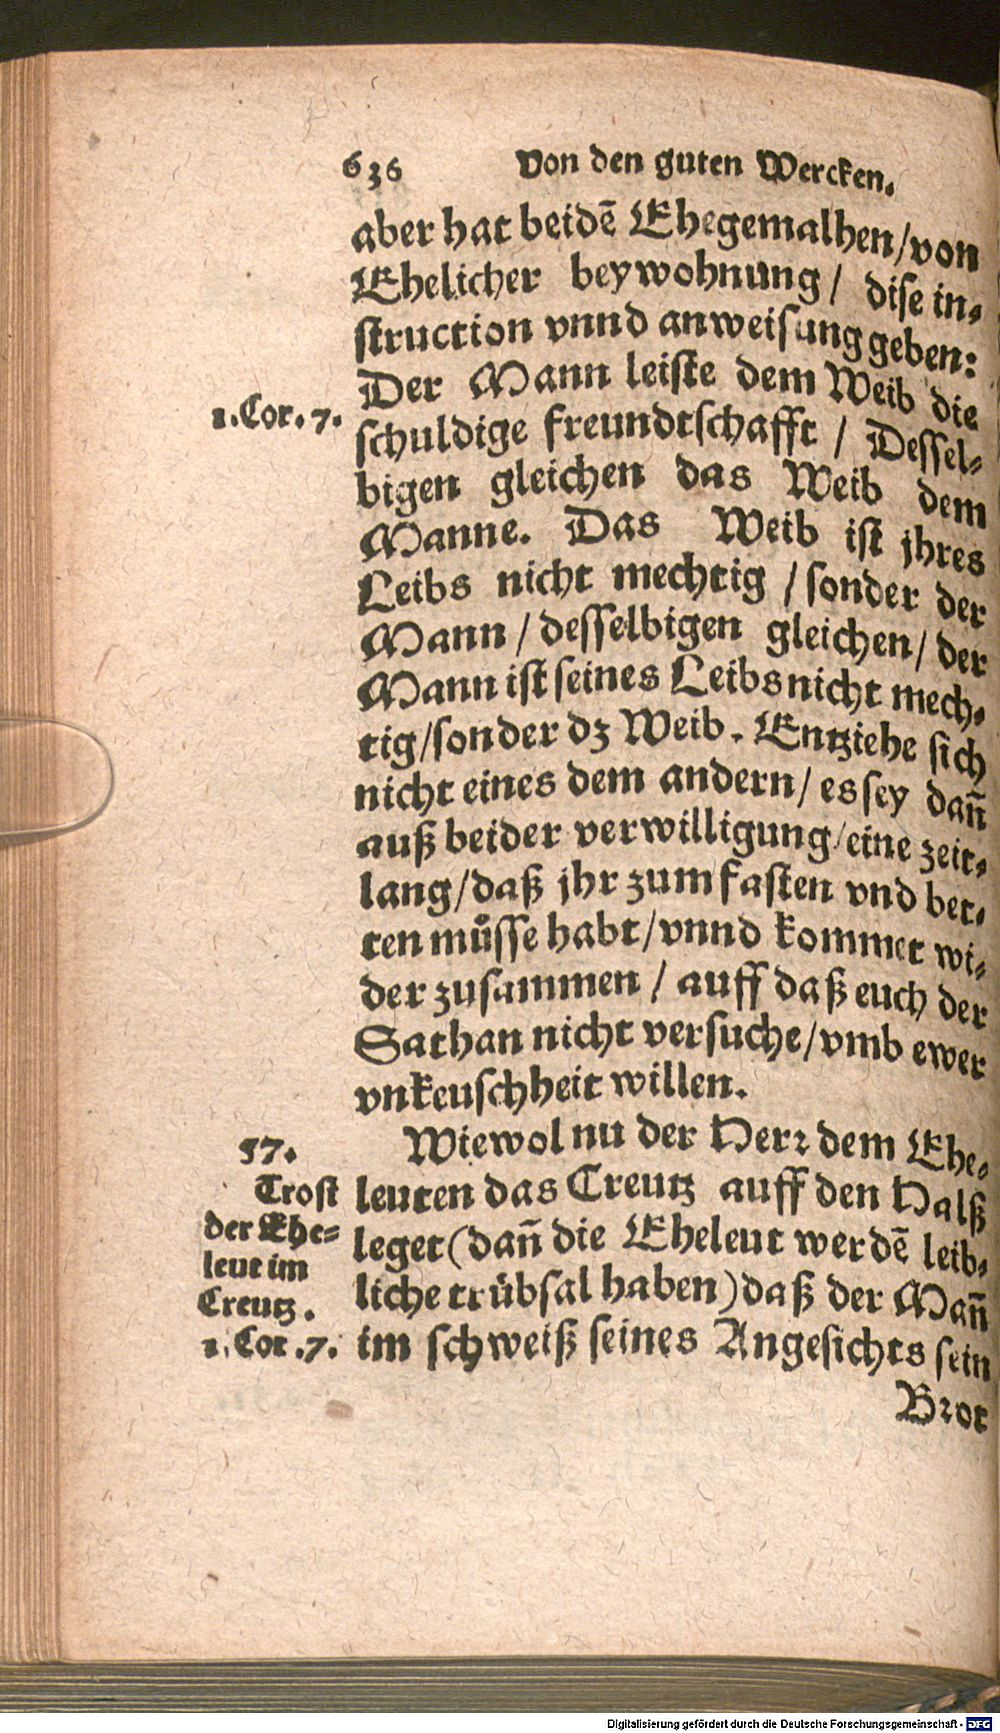 636 Von den guten Wercken.
aber hat beidẽ Ehegemalhen/von
Ehelicher beywohnung/ dise in-
struction vnnd anweisung geben:
Der Mann leiste dem Weib die
1. Cor. 7.
schuldige freundtschafft/ Dessel-
bigen gleichen das Weib dem
Manne. Das Weib ist jhres
Leibs nicht mechtig/sonder der
Mann/desselbigen gleichen/der
Mann ist seines Leibs nicht mech-
tig/sonder dz Weib. Entziehe sich
nicht eines dem andern/es sey dañ
auß beider verwilligung/eine zeit-
lang/daß jhr zum fasten vnd bet-
ten muͤsse habt/vnnd kommet wi-
der zusammen/auff daß euch der
Sathan nicht versuche/vmb ewer
vnkeuschheit willen.
57.
Trost
der Ehe-
leut im
Creutz.
1. Cor. 7.
Wiewol nu der Herr dem Ehe-
leuten das Creutz auff den Halß
leget (dañ die Eheleut werdẽ leib-
liche truͤbsal haben) daß der Mañ
im schweiß seines Angesichts sein
Brot
Digitalisierung gefördert durch die Deutsche Forschungsgemeinschaft - DFG